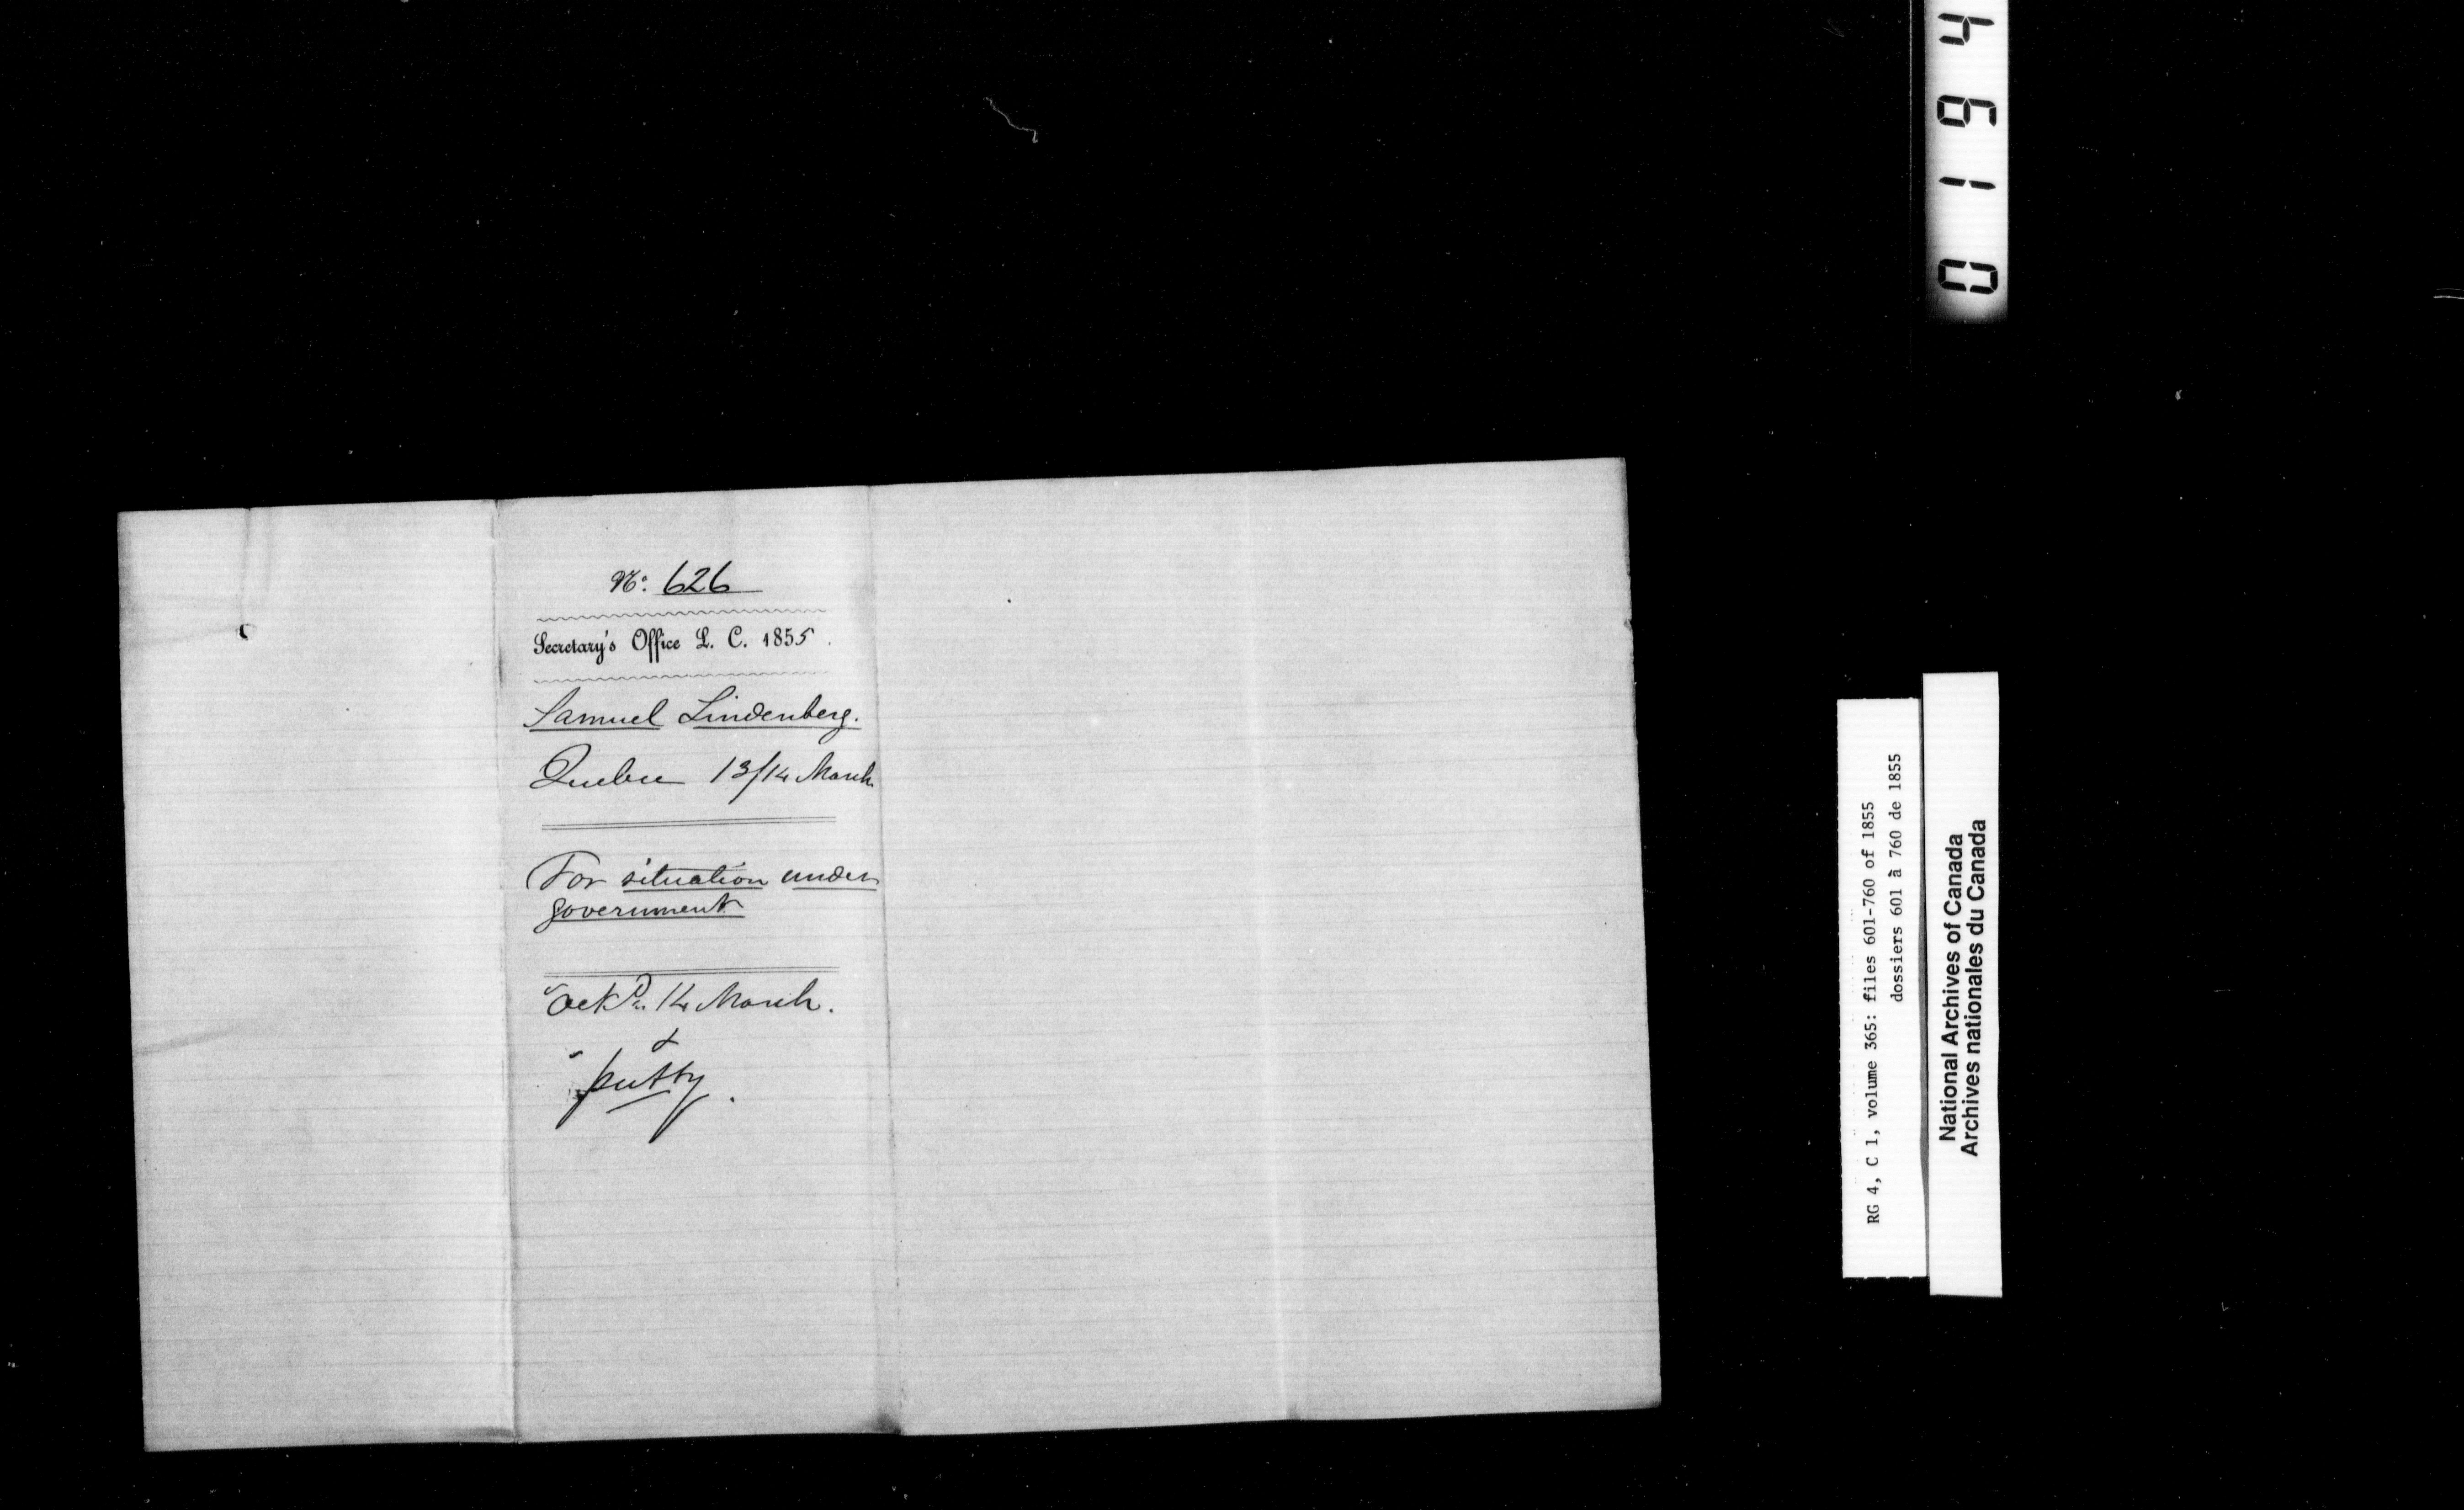 No. 626
Secretary's Office L. C. 1855.
Samuel Lindenberg.
Quebec 13/14 March
For situation under
government
Ackd. 14 March.
&
putby.
RG 4, C 1, volume 365: files 601-760 of 1855
dossiers 601 à 760 de 1855
National Archives of Canada
Archives nationales du Canada
0164